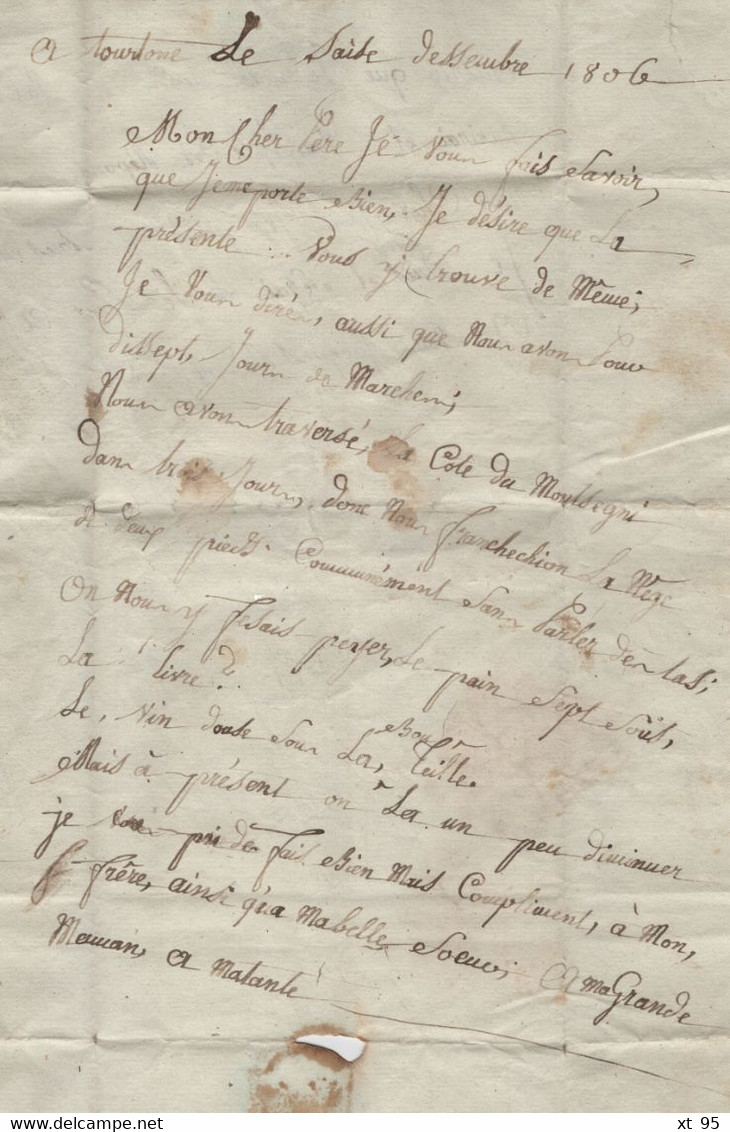 a tourtone Le Saise dessembre 1806
Mon Cher Pere Je Vour fais Savoir,
que Jeme porte Bien, Je désire que La
présente .. Vous y trouve de Même;
Je Vour diré, aussi que Nour avon Louv
dissept, Jour de Marchen;
Nour avon traversé, La Cote du Montsegni
dans trois Jour, donc Nour francheckion La Nege
de deux pieds. Communément San Parler de tas;
On Nour y fesais peyer, Le pain Sept Sous,
La livre ..
Le, vin douse Sour La, Bouteille.
Mais à présent on La un peu diminuer
je vour pri de fair Bien Mais Compliment, à Mon,
frêre, ainsi qu'a Mabelle Soeur; a ma Grande
Maman, a Matante
www.delcampe.net
xt 95